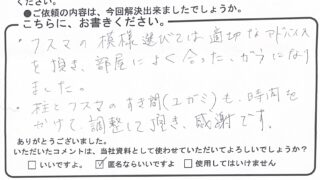 ください。
●ご依頼の内容は、今回解決出来ましたでしょうか。
こちらに、お書きください。
・フスマの模様選びでは適切なアドバイス
を頂き、部屋によく合った、がらになり
ました。
・柱とフスマのすき間(ユガミ)も、時間を
かけて調整して頂き、感謝です。
ありがとうございました。
いただいたコメントは、当社資料として使わせていただいてよろしいでしょうか?
□いいですよ。 ☑匿名ならいいですよ □使用してはいけません